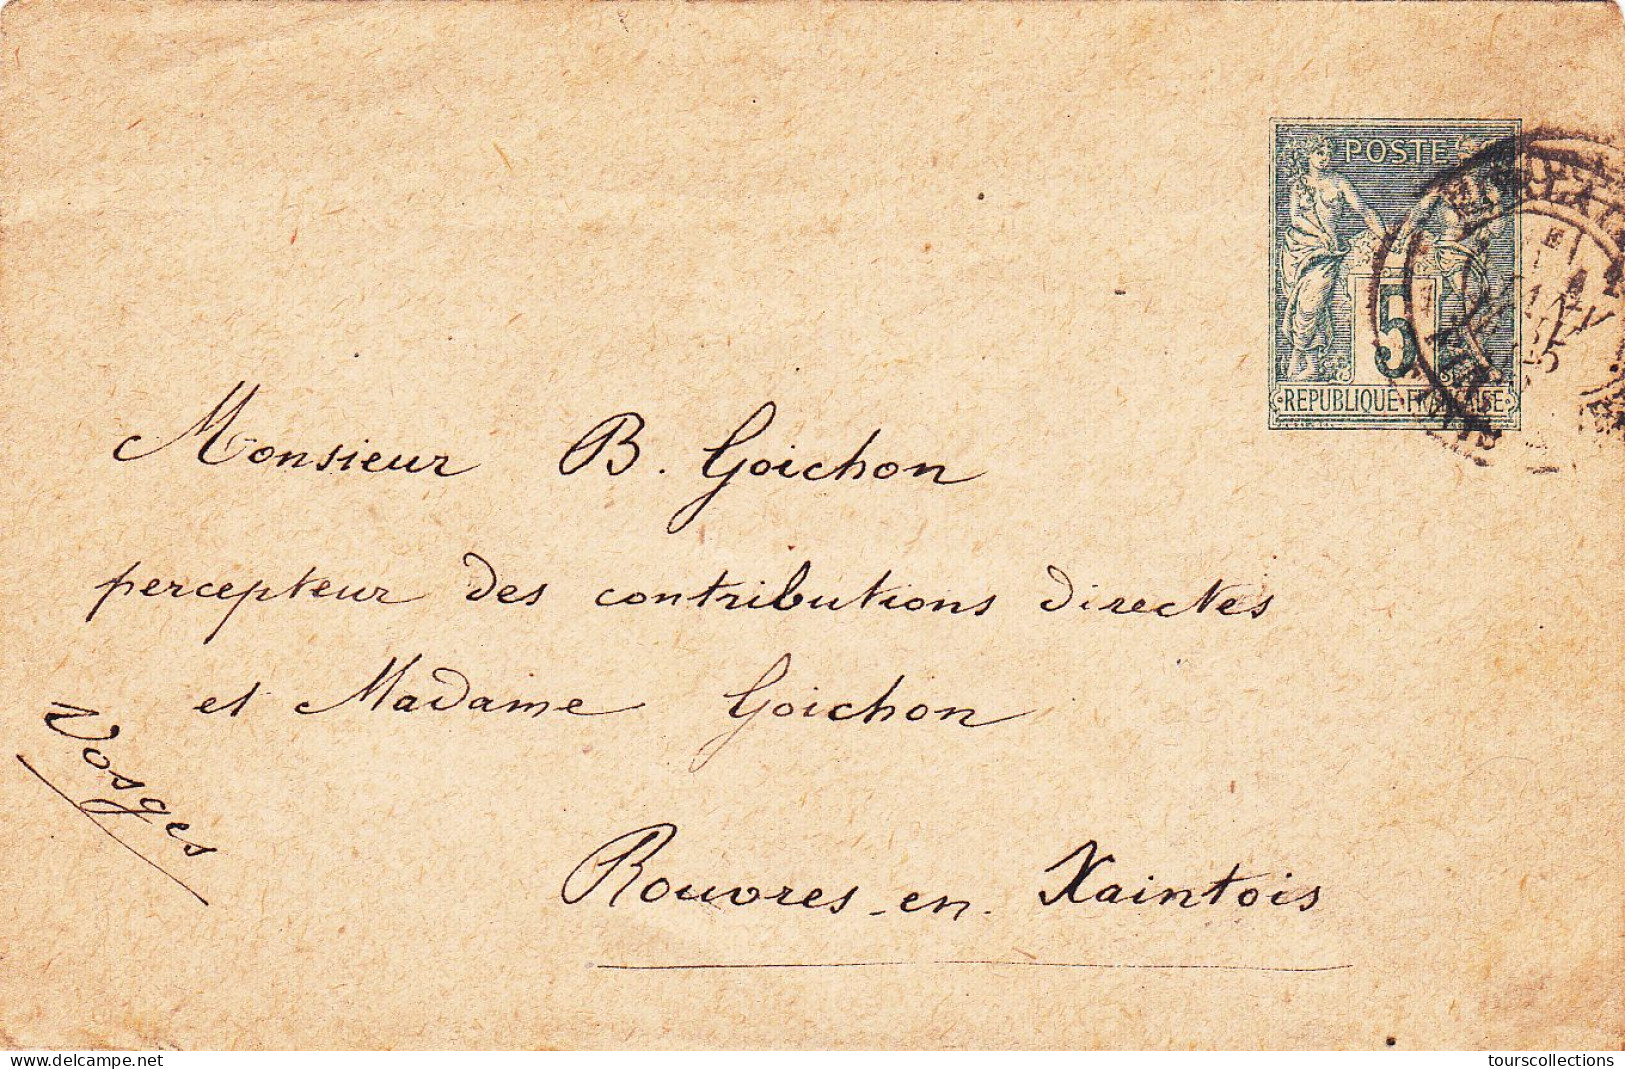 POSTES
5
REPUBLIQUE FRANCAISE
Monsieur B. Goichon
percepteur des contributions directes
et Madame Goichon
Vosges
Rouvres-en-Xaintois
www.delcampe.net
tourscollections